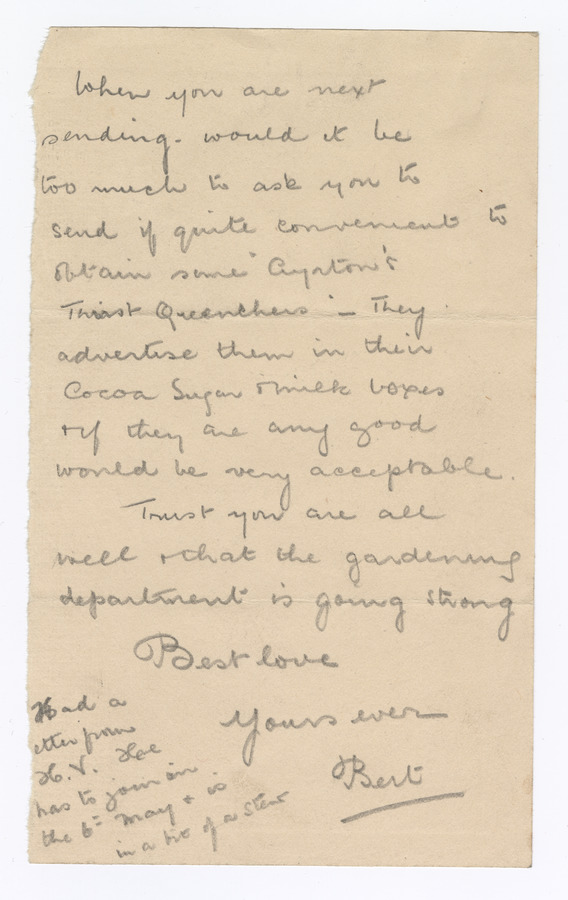 When you are next
sending. would it be
too much to ask you to
send if quite convenient to
obtain some "Ayrton's
Thirst Quenchers" – They
advertise them in their
Cocoa Sugar & milk boxes
& if they are any good
would be very acceptable.
Trust you are all
well & that the gardening
department is going strong
Best love
Yours ever
Bert
Had a
etter from
H.V. He
has to join on
the 6th May & is
in a bit of a stew